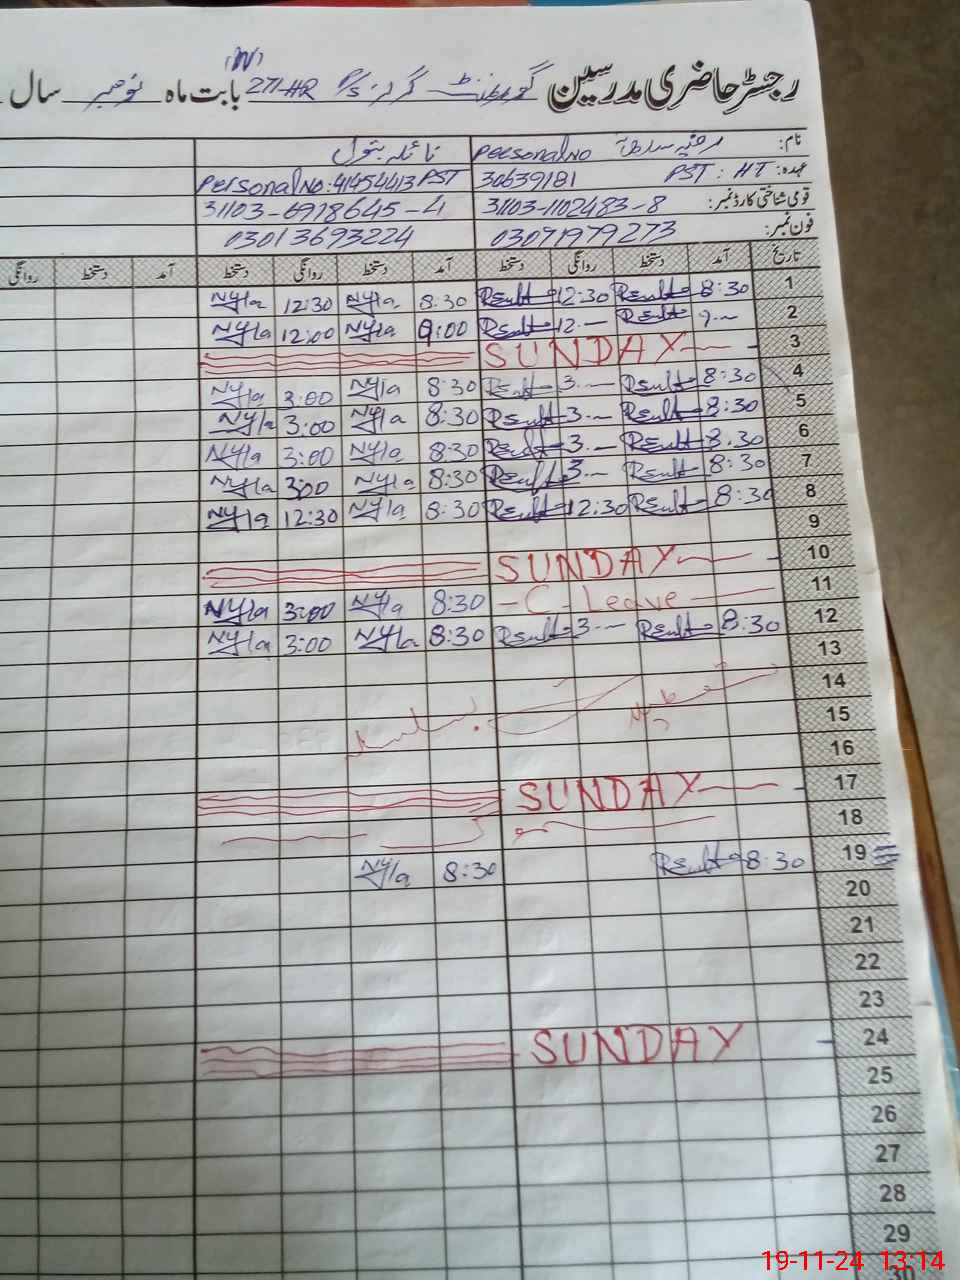 رجسٹر حاضری مدرسین گورنمنٹ گرلز P/S 271-HR بابت ماہ نومبر سال
نام: Personal No نائلہ بتول
عہدہ: PST : HT 30639181 Personal No: 41454413 PST
قومی شناختی کارڈ نمبر: 31103-1102483-8 31103-6978645-4
فون نمبر: 03071979273 03013693224
تاریخ آمد دستخط روانگی دستخط آمد دستخط روانگی دستخط آمد دستخط روانگی
1 8:30 12:30 8:30 Nyla 12:30 Nyla
2 9:00 Nyla 12:00 Nyla
3 SUNDAY
4 8:30 3 8:30 Nyla 3:00 Nyla
5 8:30 3 8:30 Nyla 3:00 Nyla
6 8:30 3 8:30 Nyla 3:00 Nyla
7 8:30 3 8:30 Nyla 3:00 Nyla
8 8:30 12:30 8:30 Nyla 12:30 Nyla
9
10 SUNDAY
11 C-Leave 8:30 Nyla 3:00 Nyla
12 8:30 3 8:30 Nyla 3:00 Nyla
13
14
15
16
17 SUNDAY
18
19 8:30 8:30 Nyla
20
21
22
23
24 SUNDAY
25
26
27
28
29
30
19-11-24 13:14